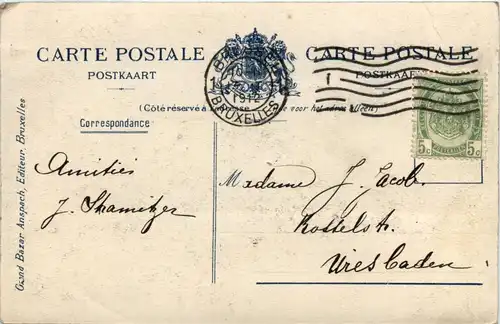 CARTE POSTALE
POSTKAART
CARTE POSTALE
POSTKAART
BRUXELLES
1912
BRUXELLES
(Côté réservé à l'adresse
voor het adres alleen)
5c 5c
Correspondance
Grand Bazar Anspach, Editeur, Bruxelles
Amitiés
J. Stamitzer
Madame J. Jacob.
Wiesbaden